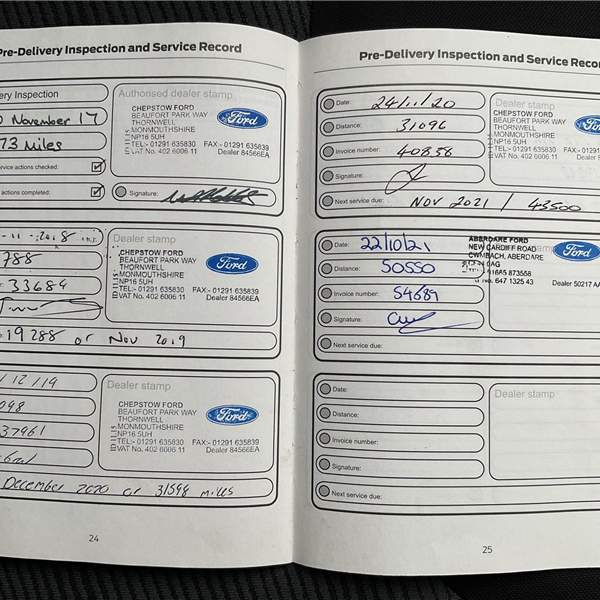 Pre-Delivery Inspection and Service Record
ery Inspection
November 17
73 Miles
ervice actions checked:
actions completed:
Authorised dealer stamp
CHEPSTOW FORD
BEAUFORT PARK WAY
THORNWELL
MONMOUTHSHIRE
NP16 5UH
TEL:- 01291 635830 FAX:- 01291 635839
VAT No. 402 6006 11 Dealer 84566EA
Ford
Signature:
-11-2018
788
33684
19288 or Nov 2019
Dealer stamp
CHEPSTOW FORD
BEAUFORT PARK WAY
THORNWELL
MONMOUTHSHIRE
NP16 5UH
TEL:- 01291 635830 FAX:- 01291 635839
VAT No. 402 6006 11 Dealer 84566EA
Ford
/12/19
098
37961
December 2020 or 31598 miles
Dealer stamp
CHEPSTOW FORD
BEAUFORT PARK WAY
THORNWELL
MONMOUTHSHIRE
NP16 5UH
TEL:- 01291 635830 FAX:- 01291 635839
VAT No. 402 6006 11 Dealer 84566EA
Ford
24
Pre-Delivery Inspection and Service Recor
Date: 24/11/20
Distance: 31096
Invoice number: 40858
Signature:
Next service due: NOV 2021 / 43500
Dealer stamp
CHEPSTOW FORD
BEAUFORT PARK WAY
THORNWELL
MONMOUTHSHIRE
NP16 5UH
TEL:- 01291 635830 FAX:- 01291
VAT No. 402 6006 11 Dealer 84566
Ford
Date: 22/10/21
Distance: 50550
Invoice number: 54689
Signature:
Next service due:
Dealer stamp
ABERDARE FORD
NEW CARDIFF ROAD
CWMBACH, ABERDARE
01685 873558
647 1325 43 Dealer 50217 AA
Ford
Date:
Distance:
Invoice number:
Signature:
Next service due:
Dealer stamp
25